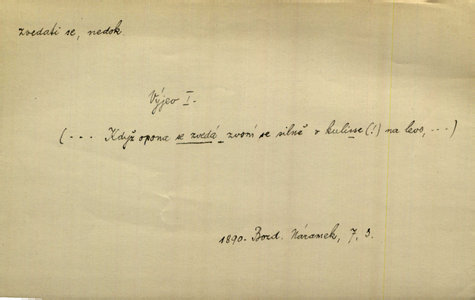 zvedati se, nedok.
Výjev I.
(--- Když opona se zvedá, zvoní se silně v kulisse (!) na levo, ---)
1890. Bozd. Náramek, 7, 3.